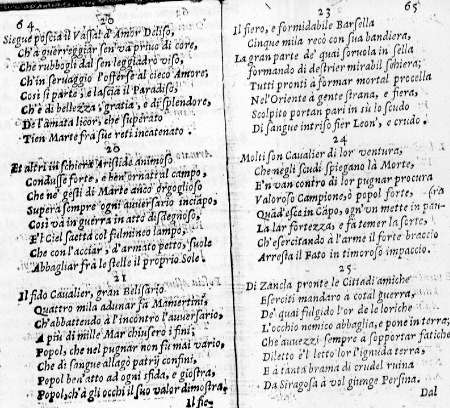 64
20
Siegue poscia il Vassal d'Amor Deliso,
Ch'a guerreggiar sen'va priuo di core,
Che rubbogli dal sen leggiadro viso,
Ch'in seruaggio l'offerse al cieco Amore;
Così si parte, e lascia il Paradiso,
Ch'è di bellezza, gratia, e di splendore,
De l'amata licor, che superato
Tien Marte frà sue reti incatenato.
20
Et altri in schiera Aristide animoso
Condusse forte, e ben'ornati al campo,
Che ne' gesti di Marte anco orgoglioso
Supera sempre ogni auuersario inciapo,
Così và in guerra in atto disdegnoso,
E'l Ciel saetta col fulmineo lampo,
Che con l'acciar, d'armato petto, suole
Abbagliar frà le stelle il proprio Sole.
21
Il fido Caualier, gran Belisario
Quattro mila adunar fà Mamertini,
Ch'abbattendo à l'incontro l'auuersario,
A più di mille Mar chiusero i fini,
Popol, che nel pugnar non fù mai vario,
Che di sangue allagò patrij confini,
Popol ben'atto ad ogni sfida, e giostra,
Popol, ch'à gli occhi il suo valor dimostra.
Il fie-
65
23
Il fiero, e formidabile Barsella
Cinque mila recò con sua bandiera,
La gran parte de' quai soruola in sella
formando di destrier mirabil schiera;
Tutti pronti à formar mortal procella
Nel'Oriente à gente strana, e fiera,
Scolpito portan pari in sù lo scudo
Di sangue intriso fier Leon', e crudo.
24
Molti son Caualier di lor ventura,
Che negli scudi spiegano là Morte,
E'n van contro di lor pugnar procura
Valoroso Campione, ò popol forte,
Quad'esce in Capo, ogn'un mette in pau- (ra
La lar fortezza, e fà temer la sorte,
Ch'esercitando à l'arme il forte braccio
Arresta il Fato in timoroso impaccio.
25
Di Zancla pronte le Cittadi amiche
Eserciti mandaro a cotal guerra,
De' quai fulgido l'or de le loriche
L'occhio nemico abbaglia, e pone in terra;
Che auuezzi sempre a sopportar fatiche
Diletto è'l letto lor l'ignuda terra,
E à tanta brama di crudel ruina
Da Siragosa à vol giunge Persina.
Dal